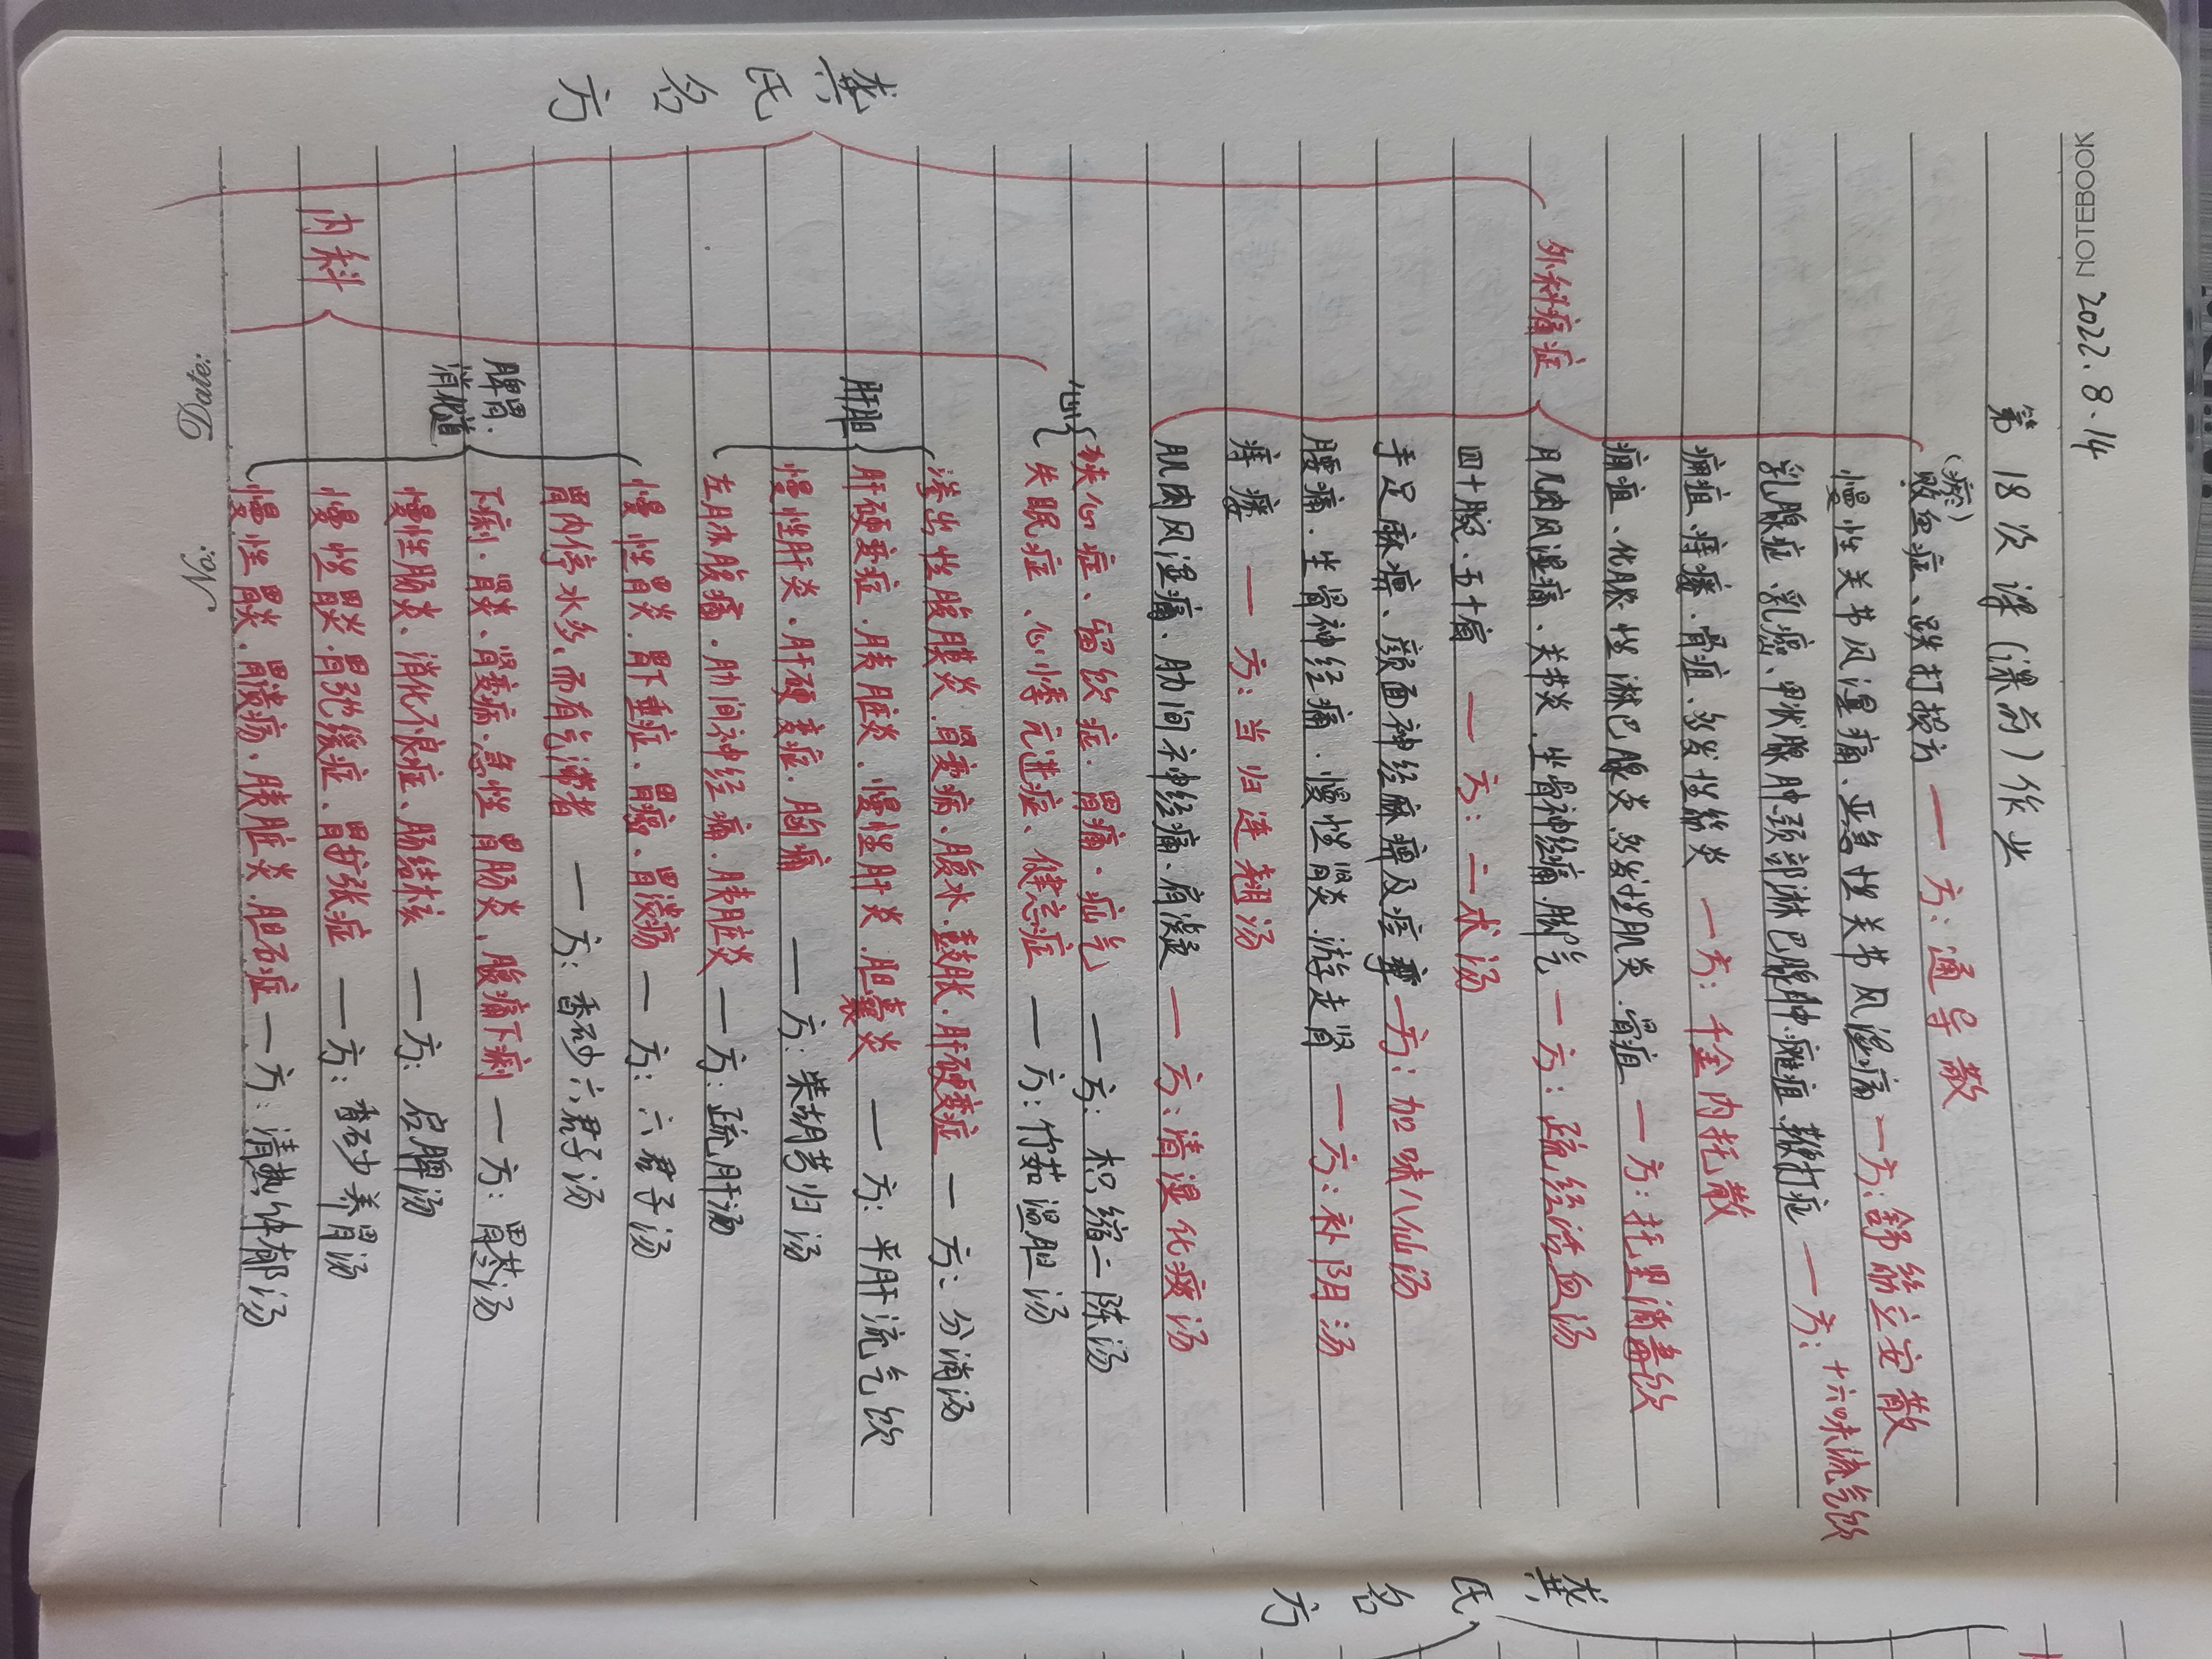 NOTEBOOK 2022.8.14
第18次课(课前)作业
龚氏名方
外科痛症
(瘀)
败血症、跌打损伤 — 方:通导散
慢性关节风湿痛、亚急性关节风湿痛 — 方:舒筋立安散
乳腺症、乳癌、甲状腺肿颈部淋巴腺肿、瘫疽、鞭打症 — 方:十六味流气饮
痈疽、痔瘘、骨疽、多发性筋炎 — 方:千金内托散
痈疽、化脓性淋巴腺炎、多发性肌炎、骨疽 — 方:托里消毒饮
肌肉风湿痛、关节炎、坐骨神经痛、脚气 — 方:疏经活血汤
四十腕、五十肩 — 方:二术汤
手足麻痹、颜面神经麻痹及痉挛 — 方:加味八仙汤
腰痛、坐骨神经痛、慢性肾炎、游走肾 — 方:补阴汤
痔瘘 — 方:当归连翘汤
肌肉风湿痛、肋间神经痛、肩凝 — 方:清湿化痰汤
内科
心
狭心症、留饮症、胃痛、疝气 — 方:枳缩二陈汤
失眠症、心悸亢进症、健忘症 — 方:竹茹温胆汤
肝胆
渗出性腹膜炎、肾变病、腹水、鼓胀、肝硬变症 — 方:分消汤
肝硬变症、胰脏炎、慢性肝炎、胆囊炎 — 方:平肝流气饮
慢性肝炎、肝硬变症、胸痛 — 方:柴胡芎归汤
左胁腹痛、肋间神经痛、胰脏炎 — 方:疏肝汤
脾胃.
消化道
慢性胃炎、胃下垂症、胃癌、胃溃疡 — 方:六君子汤
胃内停水多、而有气滞者 — 方:香砂六君子汤
下痢、胃炎、肾变病、急性胃肠炎、腹痛下痢 — 方:胃苓汤
慢性肠炎、消化不良症、肠结核 — 方:启脾汤
慢性胃炎、胃弛缓症、胃扩张症 — 方:香砂养胃汤
慢性胃炎、胃溃疡、胰脏炎、胆石症 — 方:清热解郁汤
Date: No:
龚氏名方